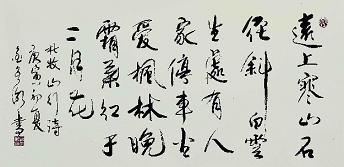 遠上寒山石
徑斜白雲
生處有人
家停車坐
愛楓林晚
霜葉紅于
二月花
杜牧山行詩
庚寅初夏
書